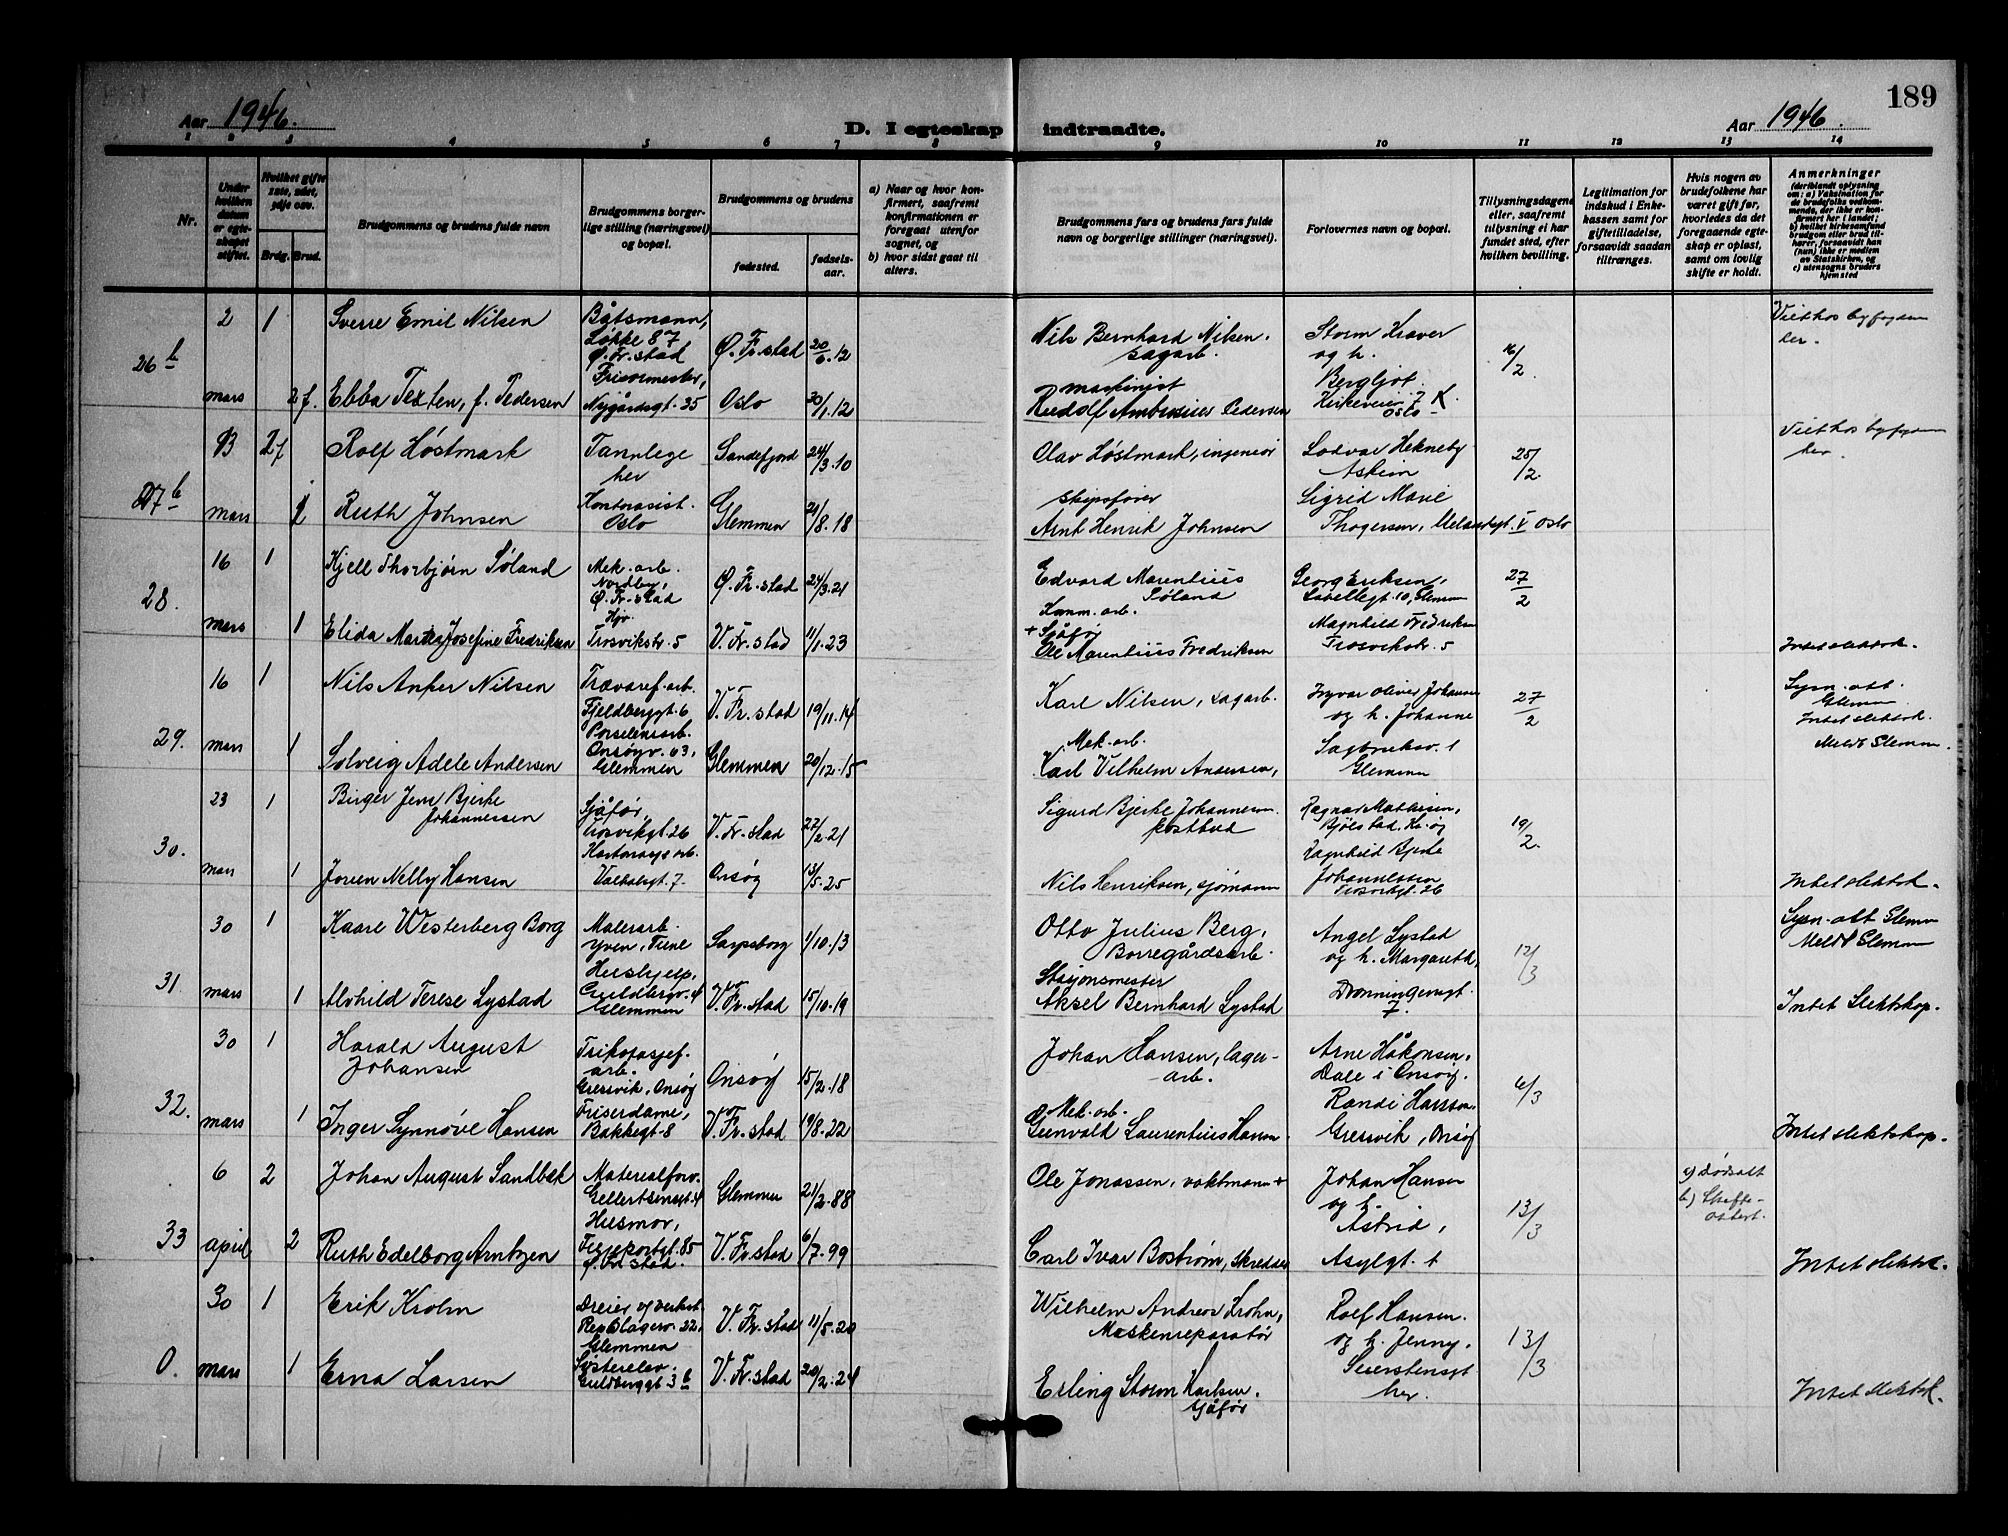 189
Aar 1946.
D. I egteskap indtraadte.
Aar 1946.
1 2 3 4 5 6 7 8 9 10 11 12 13 14
Nr.
Under hvilken datum er egteskapet stiftet.
Hvilket gifte 1ste, 2det, 3dje osv.
Brdg. Brud.
Brudgommens og brudens fulde navn
Brudgommens borgerlige stilling (næringsvei) og bopæl.
Brudgommens og brudens
fødested.
fødselsaar.
a) Naar og hvor konfirmert, saafremt konfirmationen er foregaat utenfor sognet, og
b) hvor sidst gaat til alters.
Brudgommens fars og brudens fars fulde navn og borgerlige stillinger (næringsvei).
Forlovernes navn og bopæl.
Tillysningsdagene eller, saafremt tillysning ei har fundet sted, efter hvilken bevilling.
Legitimation for indskud i Enkekassen samt for giftetilladelse, forsaavidt saadan tiltrænges.
Hvis nogen av brudefolkene har været gift før, hvorledes da det foregaaende egteskap er opløst, samt om lovlig skifte er holdt.
Anmerkninger
(deriblandt oplysning om: a) Vaksination for de brudefolks vedkommende, der ikke er konfirmert her i landet; b) hvilket kirkesamfund brudgom eller brud tilhører, forsaavidt han (hun) ikke er medlem av Statskirken, og c) utensogns bruders hjemsted
26b
2 1 Sverre Emil Nilsen
Båtsmann, Løkke 87 Ø. Fr. stad
Ø. Fr. stad 20/6.12
Nils Bernhard Nilsen. sagarb.
Storm Kraver og h. Bergljot.
16/2
Viet hos byfogden her.
mars 2f. Ebba Texten, f. Pedersen
Frisørmester, Nygårdsgt. 35
Oslo 30/1.12
maskinist Rudolf Ambrosius Pedersen
Kirkeveien 7 Oslo
27b
13 2f Rolf Løstmark
Tannlege her
Sandefjord 24/3.10
Olav Løstmark, ingeniør
Lodvar Hekneby Askim
25/2.
Viet hos byfogden her.
mars 1 Ruth Johnsen
Kontorasist. Oslo
Glemmen 21/8.18
skipsfører Arnt Henrik Johnsen
Sigrid Marie Thogersen, V Oslo
28.
16 1 Kjell Thorbjørn Søland
Mek. arb. Nordby, Ø. Fr. stad
Ø. Fr. stad 24/3.21
Edvard Marentius Søland Komm. arb.
Georg Eriksen, Labellegt. 10, Glemm
27/2
mars 1 Elida Martea Josefine Fredriksen
Hjv. Trosvikstr. 5
V. Fr. stad 11/1.23
+ Sjåfør Ole Marentius Fredriksen
Magnhild Fredriksen Trosvikstr. 5
Intet slektsk.
29.
16 1 Nils Anker Nilsen
Trævaref. arb. Fjeldberggt. 6
V. Fr. stad 19/11.14
Karl Nilsen, sagarb.
Ingvar Oliver Johansen og h. Johanne
27/2
Lysn. att. Glemm
Intet slektsk.
Meldt Glemm.
mars 1 Solveig Adele Andersen
Porselensarb. Onsøyv. 63, Glemmen
Glemmen 20/12.15
Mek. arb. Karl Vilhelm Andersen,
Sagbruksv. 1 Glemmen
30.
23 1 Birger Jens Bjerke Johannessen
Sjåfør, Trosvikgt. 26
V. Fr. stad 22/2.21
Sigurd Bjerke Johannesen postbud
Ragnar Mathisen,
19/2.
mars 1 Joreen Nelly Hansen
Valhalsgt. 7.
Onsøy 13/5.25
Nils Henriksen, sjømann
Ragnhild Bjerke Johannessen Trosvikgt. 26
Intet slektsk.
31.
30 1 Kaare Westerberg Borg
Malerarb. Yven, Tune
Sarpsborg 1/10.13
Otto Julius Berg, Borregårdsarb.
Angel Lystad og h. Margareth,
12/3
Lysn. att Glemm
Meldt Glemm
mars 1 Alvhild Terese Lystad
Hushjelp, Guldbergv. 4 Glemmen
V. Fr. stad 15/10.19
Stasjonsmester Aksel Bernhard Lystad
Dronningensgt. 7.
Intet Slektskap.
32.
30 1 Harald August Johansen
Trikotasjef. arb. Gressvik, Onsøy
Onsøy 15/2.18
Johan Hansen, lagerarb.
Arne Håkonsen, Dale i Onsøy.
6/3
mars 1 Inger Synnøve Hansen
Friserdame, Bakkegt. 8
V. Fr. stad 19/8.22
Mek. arb. Gunvald Laurentius Hansen.
Randi Hansen, Gressvik, Onsøy
Intet slektskap.
33
6 2 Johan August Sandbæk
Materialforv. Gellertsensgt. 4
Glemmen 21/2.88
Ole Jonassen, vaktmann +
Johan Hansen og h. Astrid,
13/3
a) dødsatt
b) Skifteattest.
april 2 Ruth Edelborg Arntzen
Husmor, 85 Ø. Fr. stad.
V. Fr. stad 6/7.99
Carl Ivar Bostrøm, skredder
Asylgt. 1
Intet slektsk.
0.
30 1 Erik Krohn
Dreier og verkst. 22, Glemmen
V. Fr. stad 11/5.20
Wilhelm Andreas Krohn, Maskenreparatør
Rolf Hansen. og h. Jenny.
13/3
mars 1 Erna Larsen
Søsterelev. Guldberggt 3b
V. Fr. stad 20/2.24
Erling Storm Karlsen. sjåfør
Seierstensgt her.
Intet slektsk.